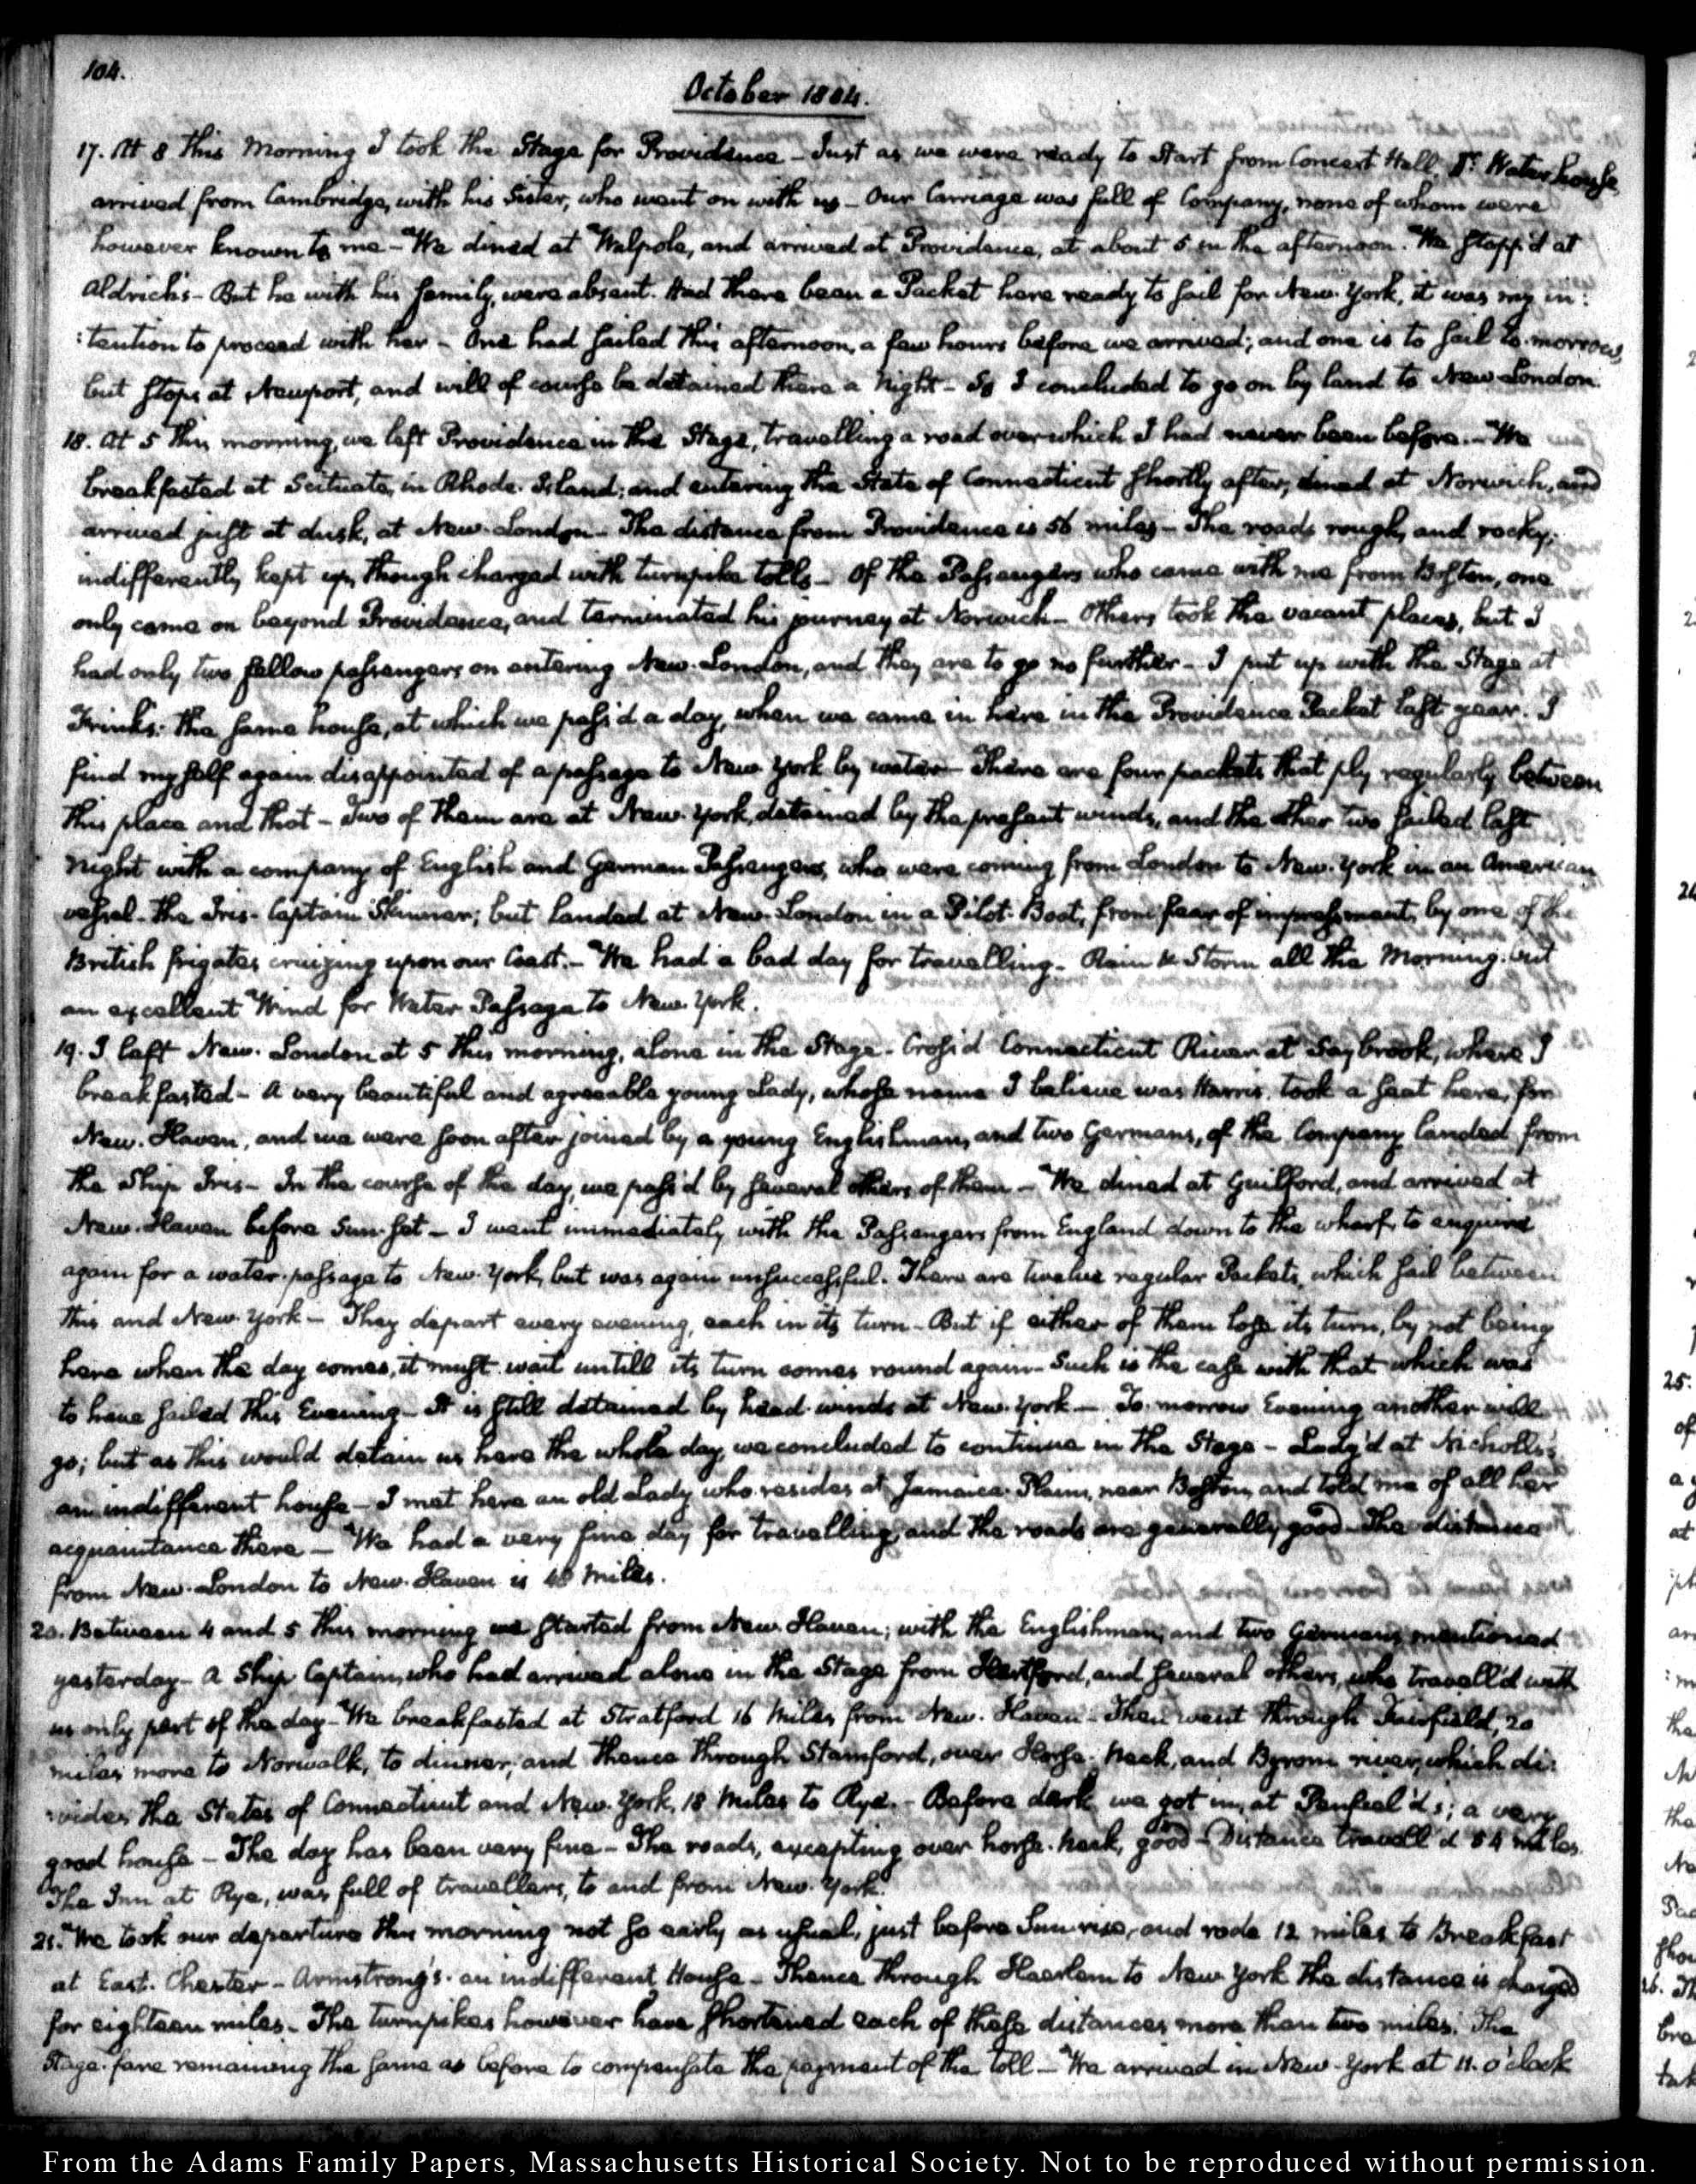 104.
October 1804.
17. At 8 this Morning I took the Stage for Providence - Just as we were ready to start from Concert Hall, Dr. Waterhouse
arrived from Cambridge, with his Sister, who went on with us - Our Carriage was full of Company, none of whom were
however known to me - We dined at Walpole, and arrived at Providence, at about 5 in the afternoon. We stopp'd at
Aldrich's - But he with his family, were absent. Had there been a Packet here ready to sail for New-York, it was my in:
:tention to proceed with her - One had sailed this afternoon, a few hours before we arrived; and one is to sail to-morrow,
but stops at Newport, and will of course be detained there a night - So I concluded to go on by land to New-London.
18. At 5 this morning, we left Providence in the Stage, travelling a road over which I had never been before. - We
breakfasted at Scituate, in Rhode-Island; and entering the State of Connecticut shortly after, dined at Norwich, and
arrived just at dusk, at New-London - The distance from Providence is 56 miles - The roads rough, and rocky;
indifferently kept up, though charged with turnpike tolls - Of the Passengers who came with me from Boston, one
only came on beyond Providence, and terminated his journey at Norwich - Others took the vacant places, but I
had only two fellow passengers on entering New-London, and they are to go no further - I put up with the Stage at
Frink's: the same house, at which we pass'd a day, when we came in here in the Providence Packet last year. I
find myself again disappointed of a passage to New-York by water - There are four packets that ply regularly between
this place and that - Two of them are at New-York, detained by the present winds, and the other two sailed last
night with a company of English and German Passengers, who were coming from London to New-York in an American
vessel - the Iris - Captain Skinner; but landed at New-London in a Pilot-Boat, from fear of impressment, by one of the
British frigates cruizing upon our Coast. - We had a bad day for travelling - Rain & Storm all the Morning: but
an excellent Wind for Water Passage to New-York.
19. I left New-London at 5 this morning, alone in the Stage - Cross'd Connecticut River at Saybrook, where I
breakfasted - A very beautiful and agreeable young Lady, whose name I believe was Harris, took a seat here, for
New-Haven, and we were soon after joined by a young Englishman, and two Germans, of the Company landed from
the Ship Iris - In the course of the day, we pass'd by several others of them - We dined at Guilford, and arrived at
New-Haven before Sun-set - I went immediately with the Passengers from England down to the wharf, to enquire
again for a water-passage to New-York, but was again unsuccessful. There are twelve regular Packets, which sail between
this and New-York - They depart every evening, each in its turn - But if either of them lose its turn, by not being
here when the day comes, it must wait untill its turn comes round again - Such is the case with that which was
to have sailed this Evening - It is still detained by head-winds at New-York - To-morrow Evening another will
go; but as this would detain us here the whole day, we concluded to continue in the Stage - Lodg'd at Nicholls's
an indifferent house - I met here an old Lady who resides at Jamaica-Plain, near Boston, and told me of all her
acquaintance there - We had a very fine day for travelling, and the roads are generally good - The distance
from New-London to New-Haven is 48 miles.
20. Between 4 and 5 this morning we started from New-Haven; with the Englishman, and two Germans mentioned
yesterday - A Ship Captain, who had arrived alone in the Stage from Hartford, and several others, who travell'd with
us only part of the day - We breakfasted at Stratford 16 miles from New-Haven - Then went through Fairfield, 20
miles more to Norwalk, to dinner; and thence through Stamford, over Horse-Neck, and Byrom river, which di:
:vides the States of Connecticut and New-York, 18 miles to Rye. - Before dark we got in, at Penfield's; a very
good house - The day has been very fine - The roads, excepting over horse-neck, good - Distance travell'd 54 miles.
The Inn at Rye, was full of travellers, to and from New-York.
21. We took our departure this morning not so early as usual, just before Sun-rise, and rode 12 miles to Breakfast
at East-Chester - Armstrong's - an indifferent House - Thence through Haerlem to New-York the distance is charged
for eighteen miles - The turnpikes however have shortened each of these distances more than two miles. The
Stage-fare remaining the same as before to compensate the payment of the toll - We arrived in New-York at 11. o'clock
From the Adams Family Papers, Massachusetts Historical Society. Not to be reproduced without permission.